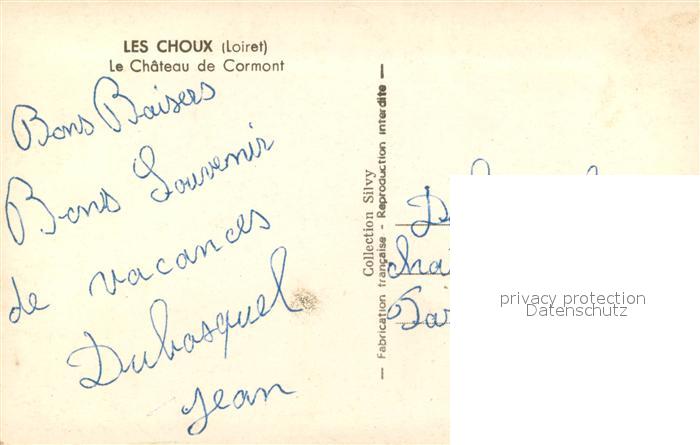 LES CHOUX (Loiret)
Le Château de Cormont
Bons Baisers
Bons Souvenir
de vacances
Dubosquel
Jean
Collection Silvy
— Fabrication française - Reproduction interdite —
privacy protection
Datenschutz